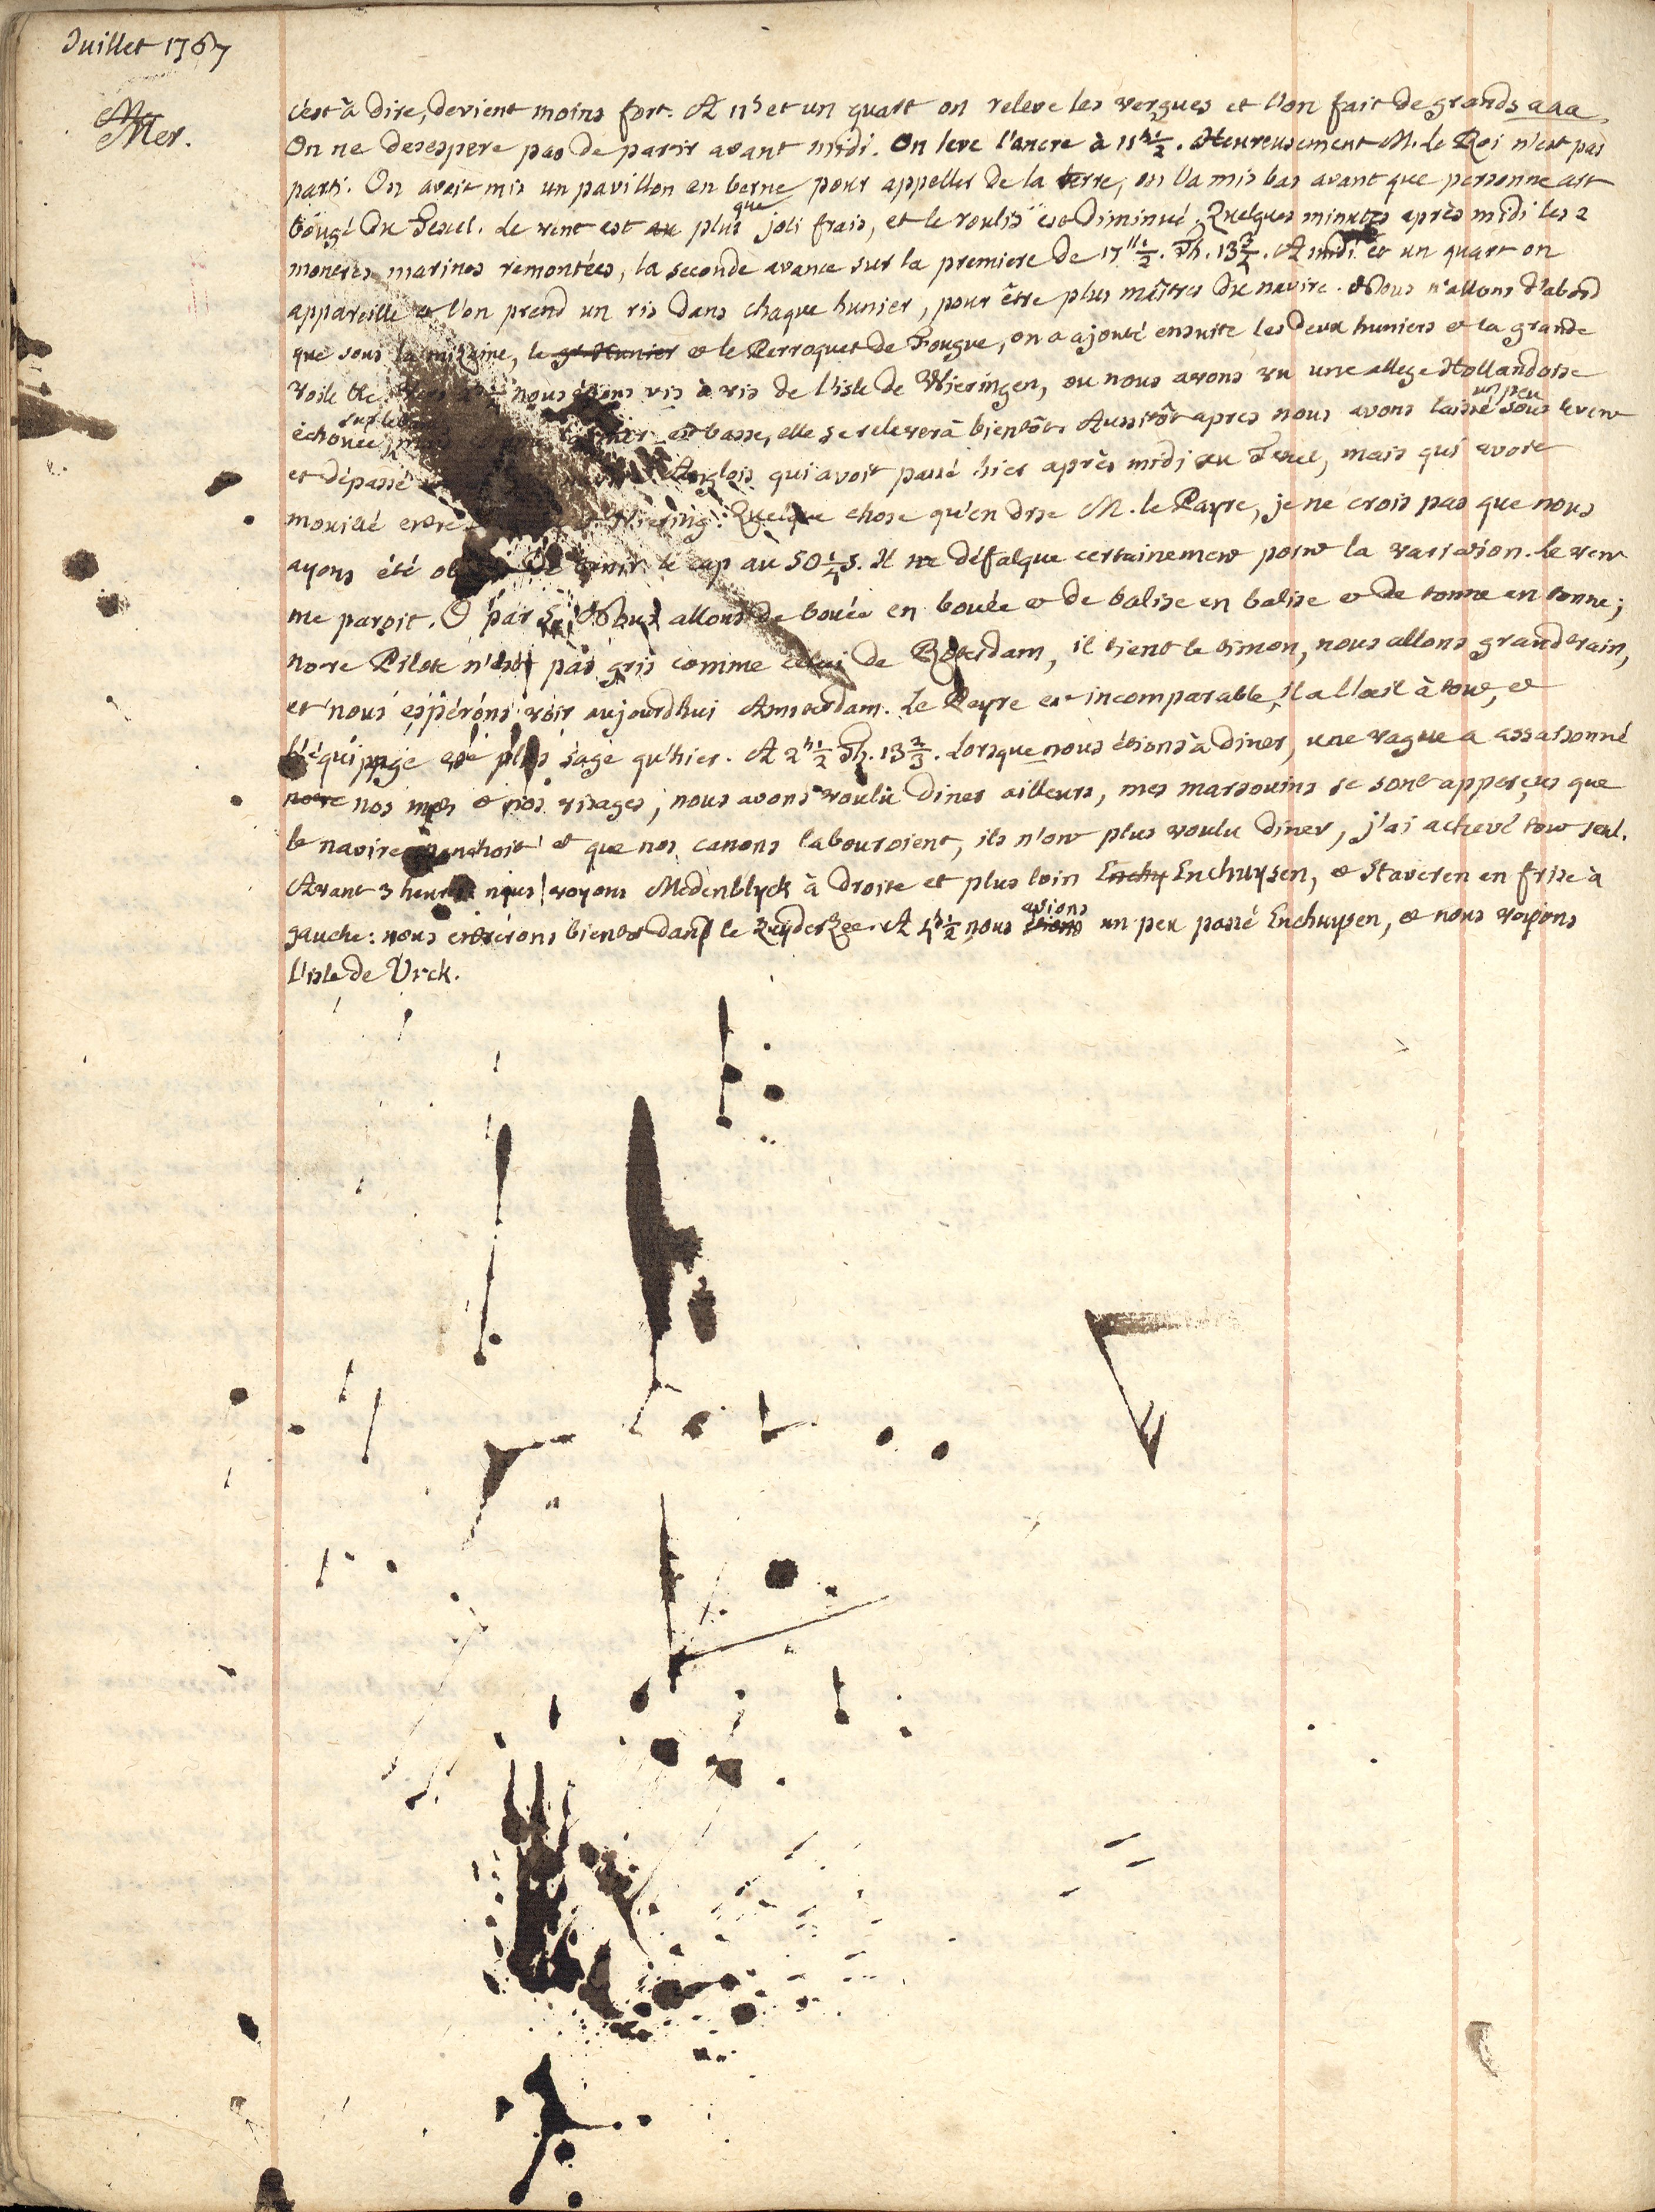 Juillet 1767
Mer.
c'est à dire, devient moins fort. A 11h et un quart on releve les vergues et l'on fait de grands aaa.
On ne desespere pas de partir avant midi. On leve l'ancre à 11h 1/2. Heureusement M. le Roi n'est pas
parti. On avoit mis un pavillon en berne pour appeller de la terre, on l'a mis bas avant que personne ait
bougé du Texel. Le vent est au plus que joli frais, et le roulis est diminué. Quelques minutes après midi les 2
montres marines remontées, la seconde avance sur la premiere de 17" 1/2. Th. 13 3/4. A midi et un quart on
appareille et l'on prend un ris dans chaque hunier, pour être plus maîtres du navire. Nous n'allons d'abord
que sous la mizaine, le gr. Hunier et le Perroquet de Fougue, on a ajouté ensuite les deux huniers et la grande
voile nous étions vis à vis de l'isle de Wieringen, ou nous avons vu une allege Hollandoise
échouée sur le mer est basse, elle se relevera bientôt. Aussitôt apres nous avons laissé un peu sous le vent
et dépassé Anglois qui avoit passé hier après midi au Texel, mais qui avoit
mouillé entre Wiering. Quelque chose qu'en dise M. le Payre, je ne crois pas que nous
ayons été de tenir le cap au SO 1/4 S. Il ne défalque certainement point la variation. Le vent
me paroit. O par Nous allons de bouée en bouée et de balise en balise et de tonne en tonne;
notre Pilote n'est pas gris comme celui de Roterdam, il tient le timon, nous allons grand train,
et nous éspérons voir aujourdhui Amsterdam. Le Payre est incomparable, il a l'oeil à tout, et
l'équipage est plus sage qu'hier. A 2h 1/2 Th. 13 2/3. Lorsque nous étions à diner, une vague a assaisonné
notre nos mets et nos visages; nous avons voulu diner ailleurs, mes marsouins se sont apperçus que
le navire panchoit et que nos canons labouroient, ils n'ont plus voulu diner, j'ai achevé tout seul.
Avant 3 heures nous voyons Medenblyck à droite et plus loin Enchy Enchuysen, et Staveren en frise à
gauche: nous entrerons bientot dans le Zuyder Zee. A 4h 1/2 nous étions avions un peu passé Enchuysen, et nous voyions
l'isle de Urck.